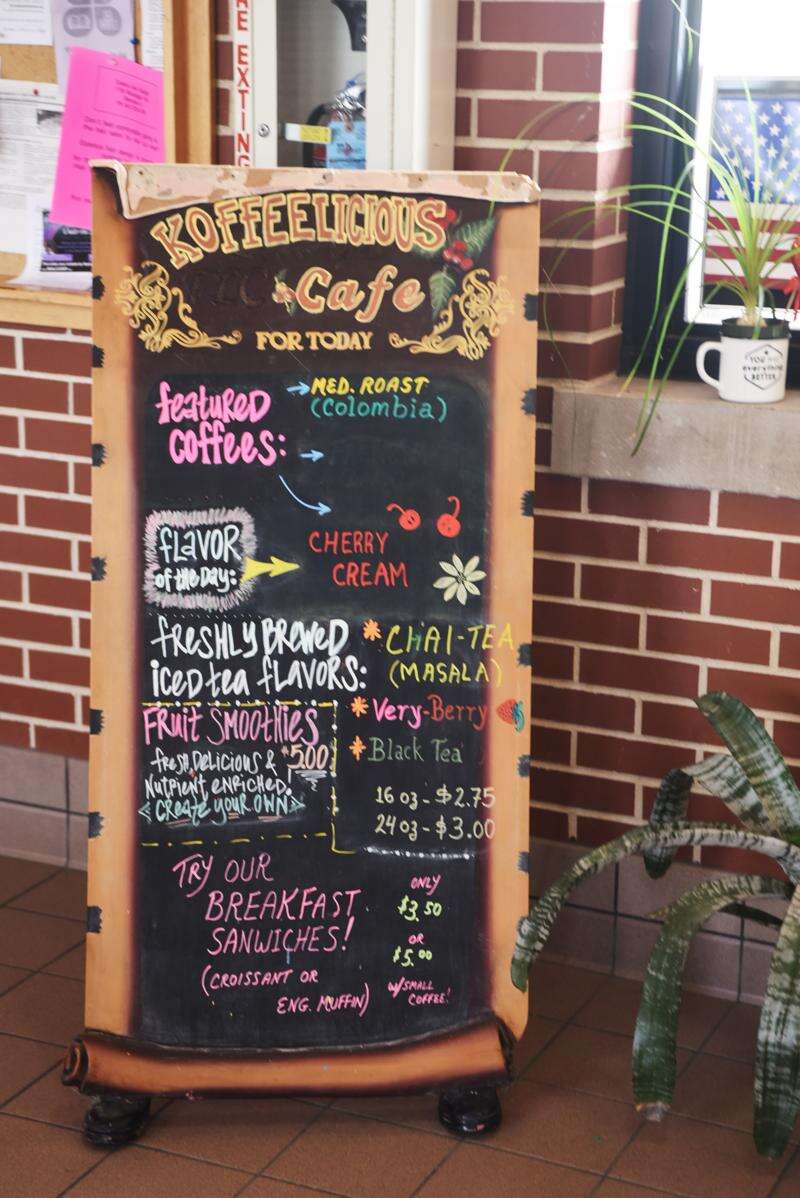 KOFFEELICIOUS
Cafe
FOR TODAY
featured
coffees:
MED. ROAST
(Colombia)
fLAVOR
of the Day:
CHERRY
CREAM
fRESHLY BREWED
iCED tea fLAVORS:
CHAI-TEA
(MASALA)
Very-Berry
Black Tea
16 oz - $2.75
24 oz - $3.00
FRuit SMOOTHiES
fresh, Delicious &
$5.00
NUtRiENt ENRiCHED.
<CReate YOUR OWN>
TRY OUR
BREAKFAST
SANWICHES!
(CROISSANT OR
ENG. MUFFIN)
ONLY
$3.50
OR
$5.00
W/SMALL
COFFEE!
YOU are
everything
BETTER